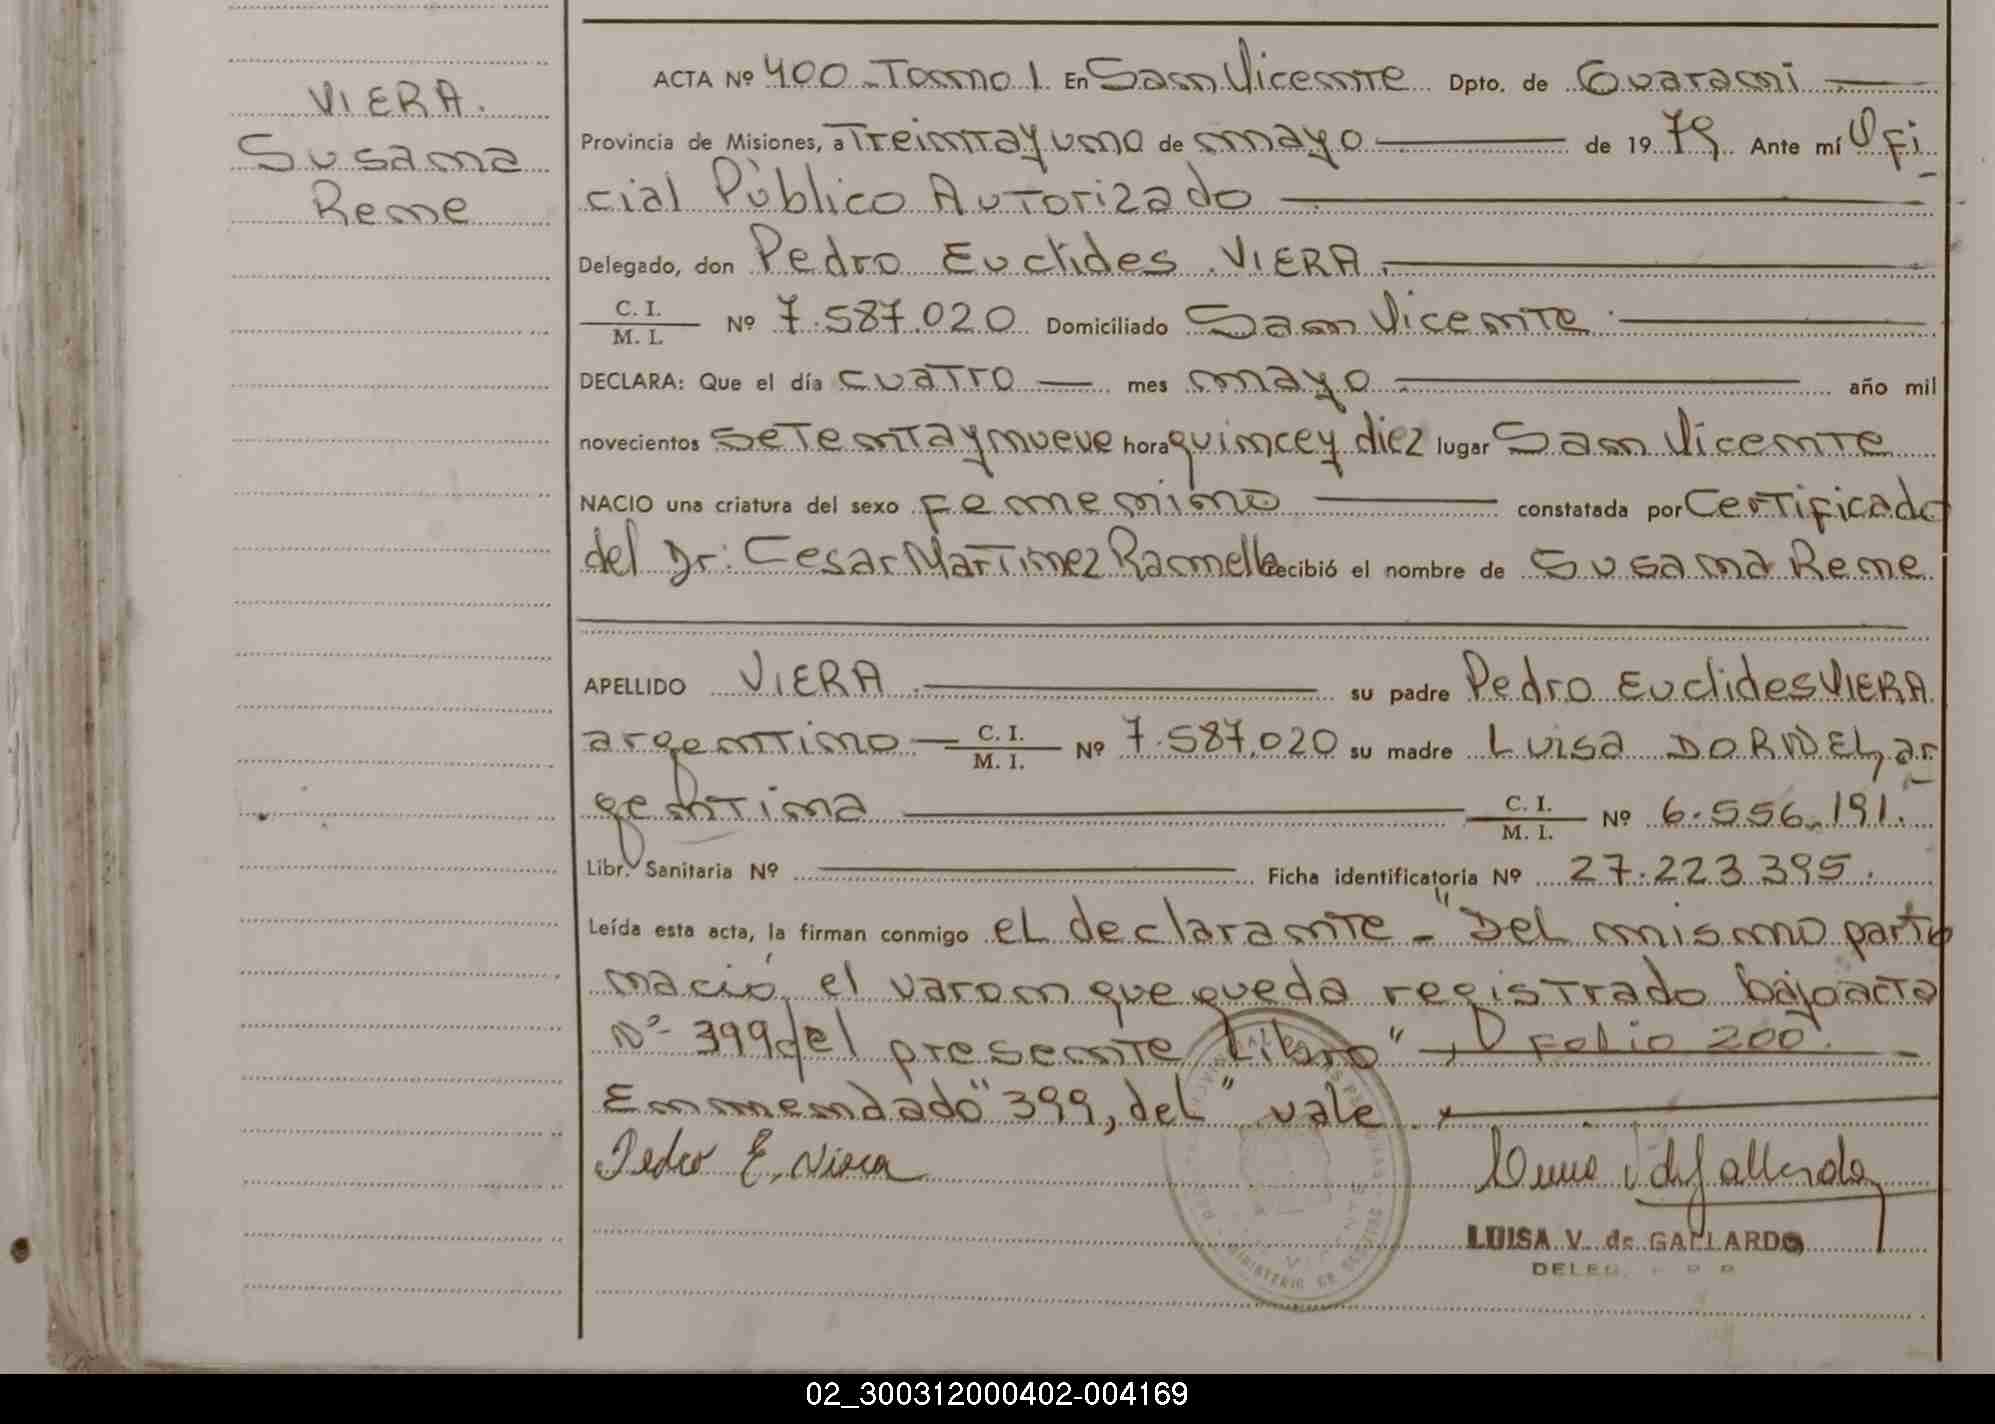 VIERA.
Susana
Rene
ACTA Nº 400 - Tomo 1. En San Vicente Dpto. de Guarani
Provincia de Misiones, a Treinta y uno de mayo de 1979. Ante mí Ofi
cial Público Autorizado
Delegado, don Pedro Euclides VIERA.
C. I.
M. I. Nº 7.587.020 Domiciliado San Vicente.
DECLARA: Que el día cuatro mes mayo año mil
novecientos setenta y nueve hora quince y diez lugar San Vicente
NACIO una criatura del sexo femenino constatada por Certificado
del Dr: Cesar Martinez Ramella recibió el nombre de Susana Rene
APELLIDO VIERA su padre Pedro Euclides VIERA
argentino C. I.
M. I. Nº 7.587.020 su madre Luisa DORNDEL, ar
gentina C. I.
M. I. Nº 6.556.191.
Libr. Sanitaria Nº Ficha identificatoria Nº 27.223.395.
Leída esta acta, la firman conmigo el declarante - "Del mismo parto
nació, el varon que queda registrado bajo acta
Nº 399 del presente Libro", folio 200.
Enmendado "399, del" vale.
Pedro E. Viera
LUISA V. de GALLARDO
DELEG.
02_300312000402-004169